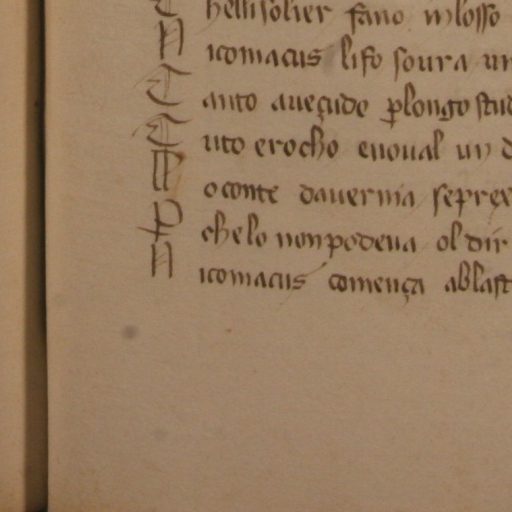 C hellisolier fano inlosso
N icomacus lifo soura un
T anto aueçudo plongo stud
T uto erocho euoual un d
M oconte dauernia sepree
P chelo nonpodeua ol dir
N icomacus comença ablast